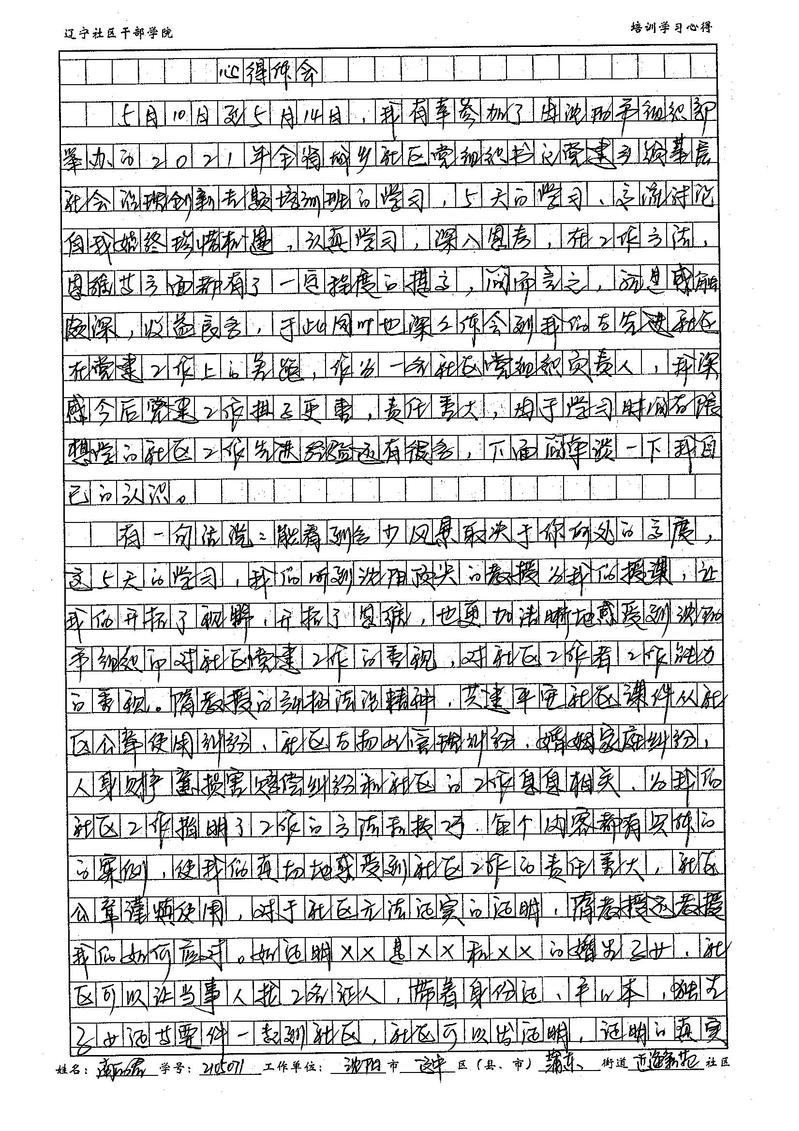 辽宁社区干部学院 培训学习心得
心得体会
5月10日至5月14日，我有幸参加了由沈阳市组织部
举办的2021年全省城乡社区党组织书记党建引领基层
社会治理创新专题培训班的学习，5天的学习、交流讨论
自我始终珍惜机遇，认真学习，深入思考，在工作方法，
思维等方面都有了一定程度的提高，简而言之，就是感触
颇深，收益良多，于此同时也深刻体会到我们与先进社区
在党建工作上的差距，作为一名社区党组织负责人，我深
感今后党建工作担子更重，责任重大，由于学习时间有限
想学的社区工作先进经验还有很多，下面简单谈一下我自
己的认识。
有一句话说：能看到多少风景取决于你所处的高度，
这5天的学习，我们听到沈阳顶尖的教授为我们授课，让
我们开拓了视野，开拓了思维，也更加清晰地感受到沈阳
市组织部对社区党建工作的重视，对社区工作者工作能力
的重视。隋教授的弘扬法治精神，共建平安社区课件从社
区公章使用纠纷、社区与物业管理纠纷、婚姻家庭纠纷，
人身财产损害赔偿纠纷和社区的工作息息相关，为我们
社区工作指明了工作的方法和技巧，每个内容都有具体的
的案例，使我们真切地感受到社区工作的责任重大，社区
公章谨慎使用，对于社区无法证实的证明，隋教授还教授
我们如何应对。如证明XX是XX和XX的婚生子女，社
区可以让当事人找2名证人，带着身份证、户口本，独生
子女证等要件一起到社区，社区可以出证明，证明的真实
姓名： 学号：215071 工作单位：沈阳市 区（县、市） 街道 社区